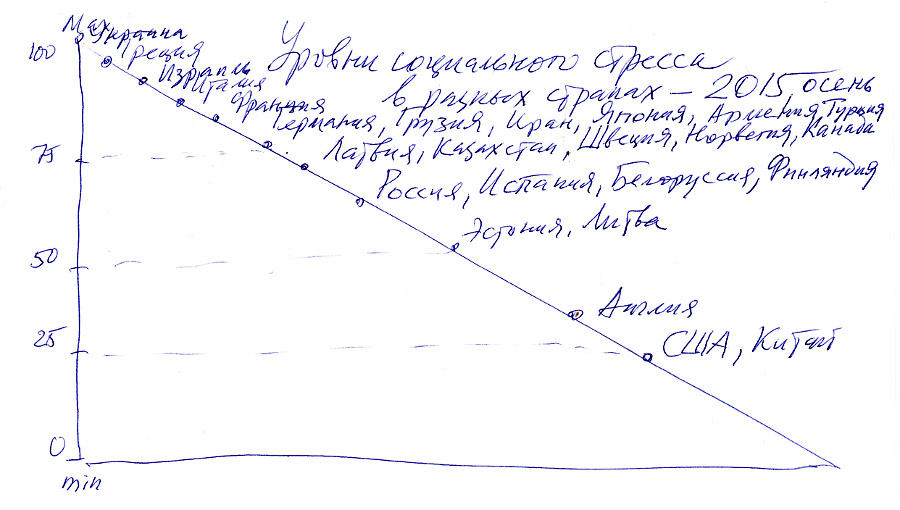 Max
100
Украина
Греция
Израиль
Италия
Франция
Уровни социального стресса
в разных странах – 2015, осень
Германия, Грузия, Иран, Япония, Армения, Турция
75
Латвия, Казахстан, Швеция, Норвегия, Канада
Россия, Испания, Белоруссия, Финляндия
Эстония, Литва
50
Англия
25
США, Китай
0
min